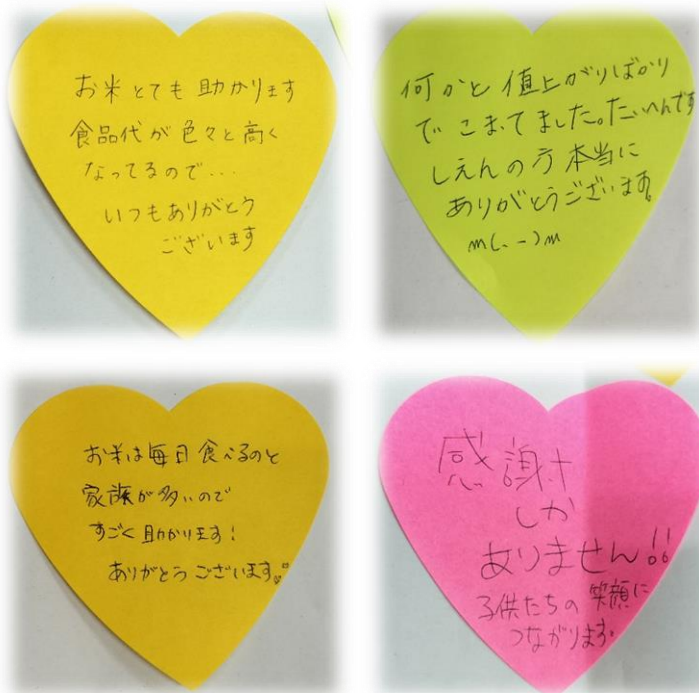 お米とても助かります
食品代が色々と高く
なってるので...
いつもありがとう
ございます
何かと値上がりばかり
でこまてました。たいへんです
しえんの方本当に
ありがとうございます。
m(. -)m
お米は毎日食べるのと
家族が多いので
すごく助かります!
ありがとうございます。
感謝
しか
ありません!!
子供たちの笑顔に
つながります。